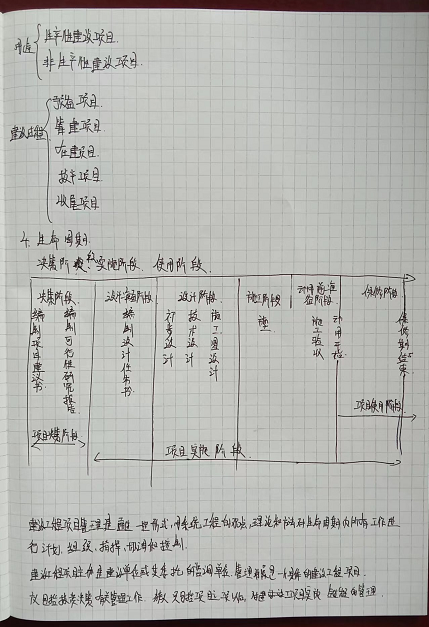 用途
生产性建设项目
非生产性建设项目.
建设过程
预备项目
筹建项目
在建项目
投产项目
收尾项目
4. 生命周期
决策阶段. 实施阶段. 使用阶段.
决策阶段
设计准备阶段
设计阶段
施工阶段
动用前准备阶段
保修阶段
编制项目建议书
编制可行性研究报告
编制设计任务书
初步设计
技术设计
施工图设计
施工
竣工验收
动用开始
保修期结束
项目使用阶段
项目决策阶段
项目实施阶段
建设工程项目管理是 一 用系统工程的 理论和方法对生命周期内所有工作进
行计划. 组织. 指挥. 协调和控制.
建设工程项目 是建设单位或 委托的咨询单位. 管理 的建设工程项目.
管理工作. 的管理.